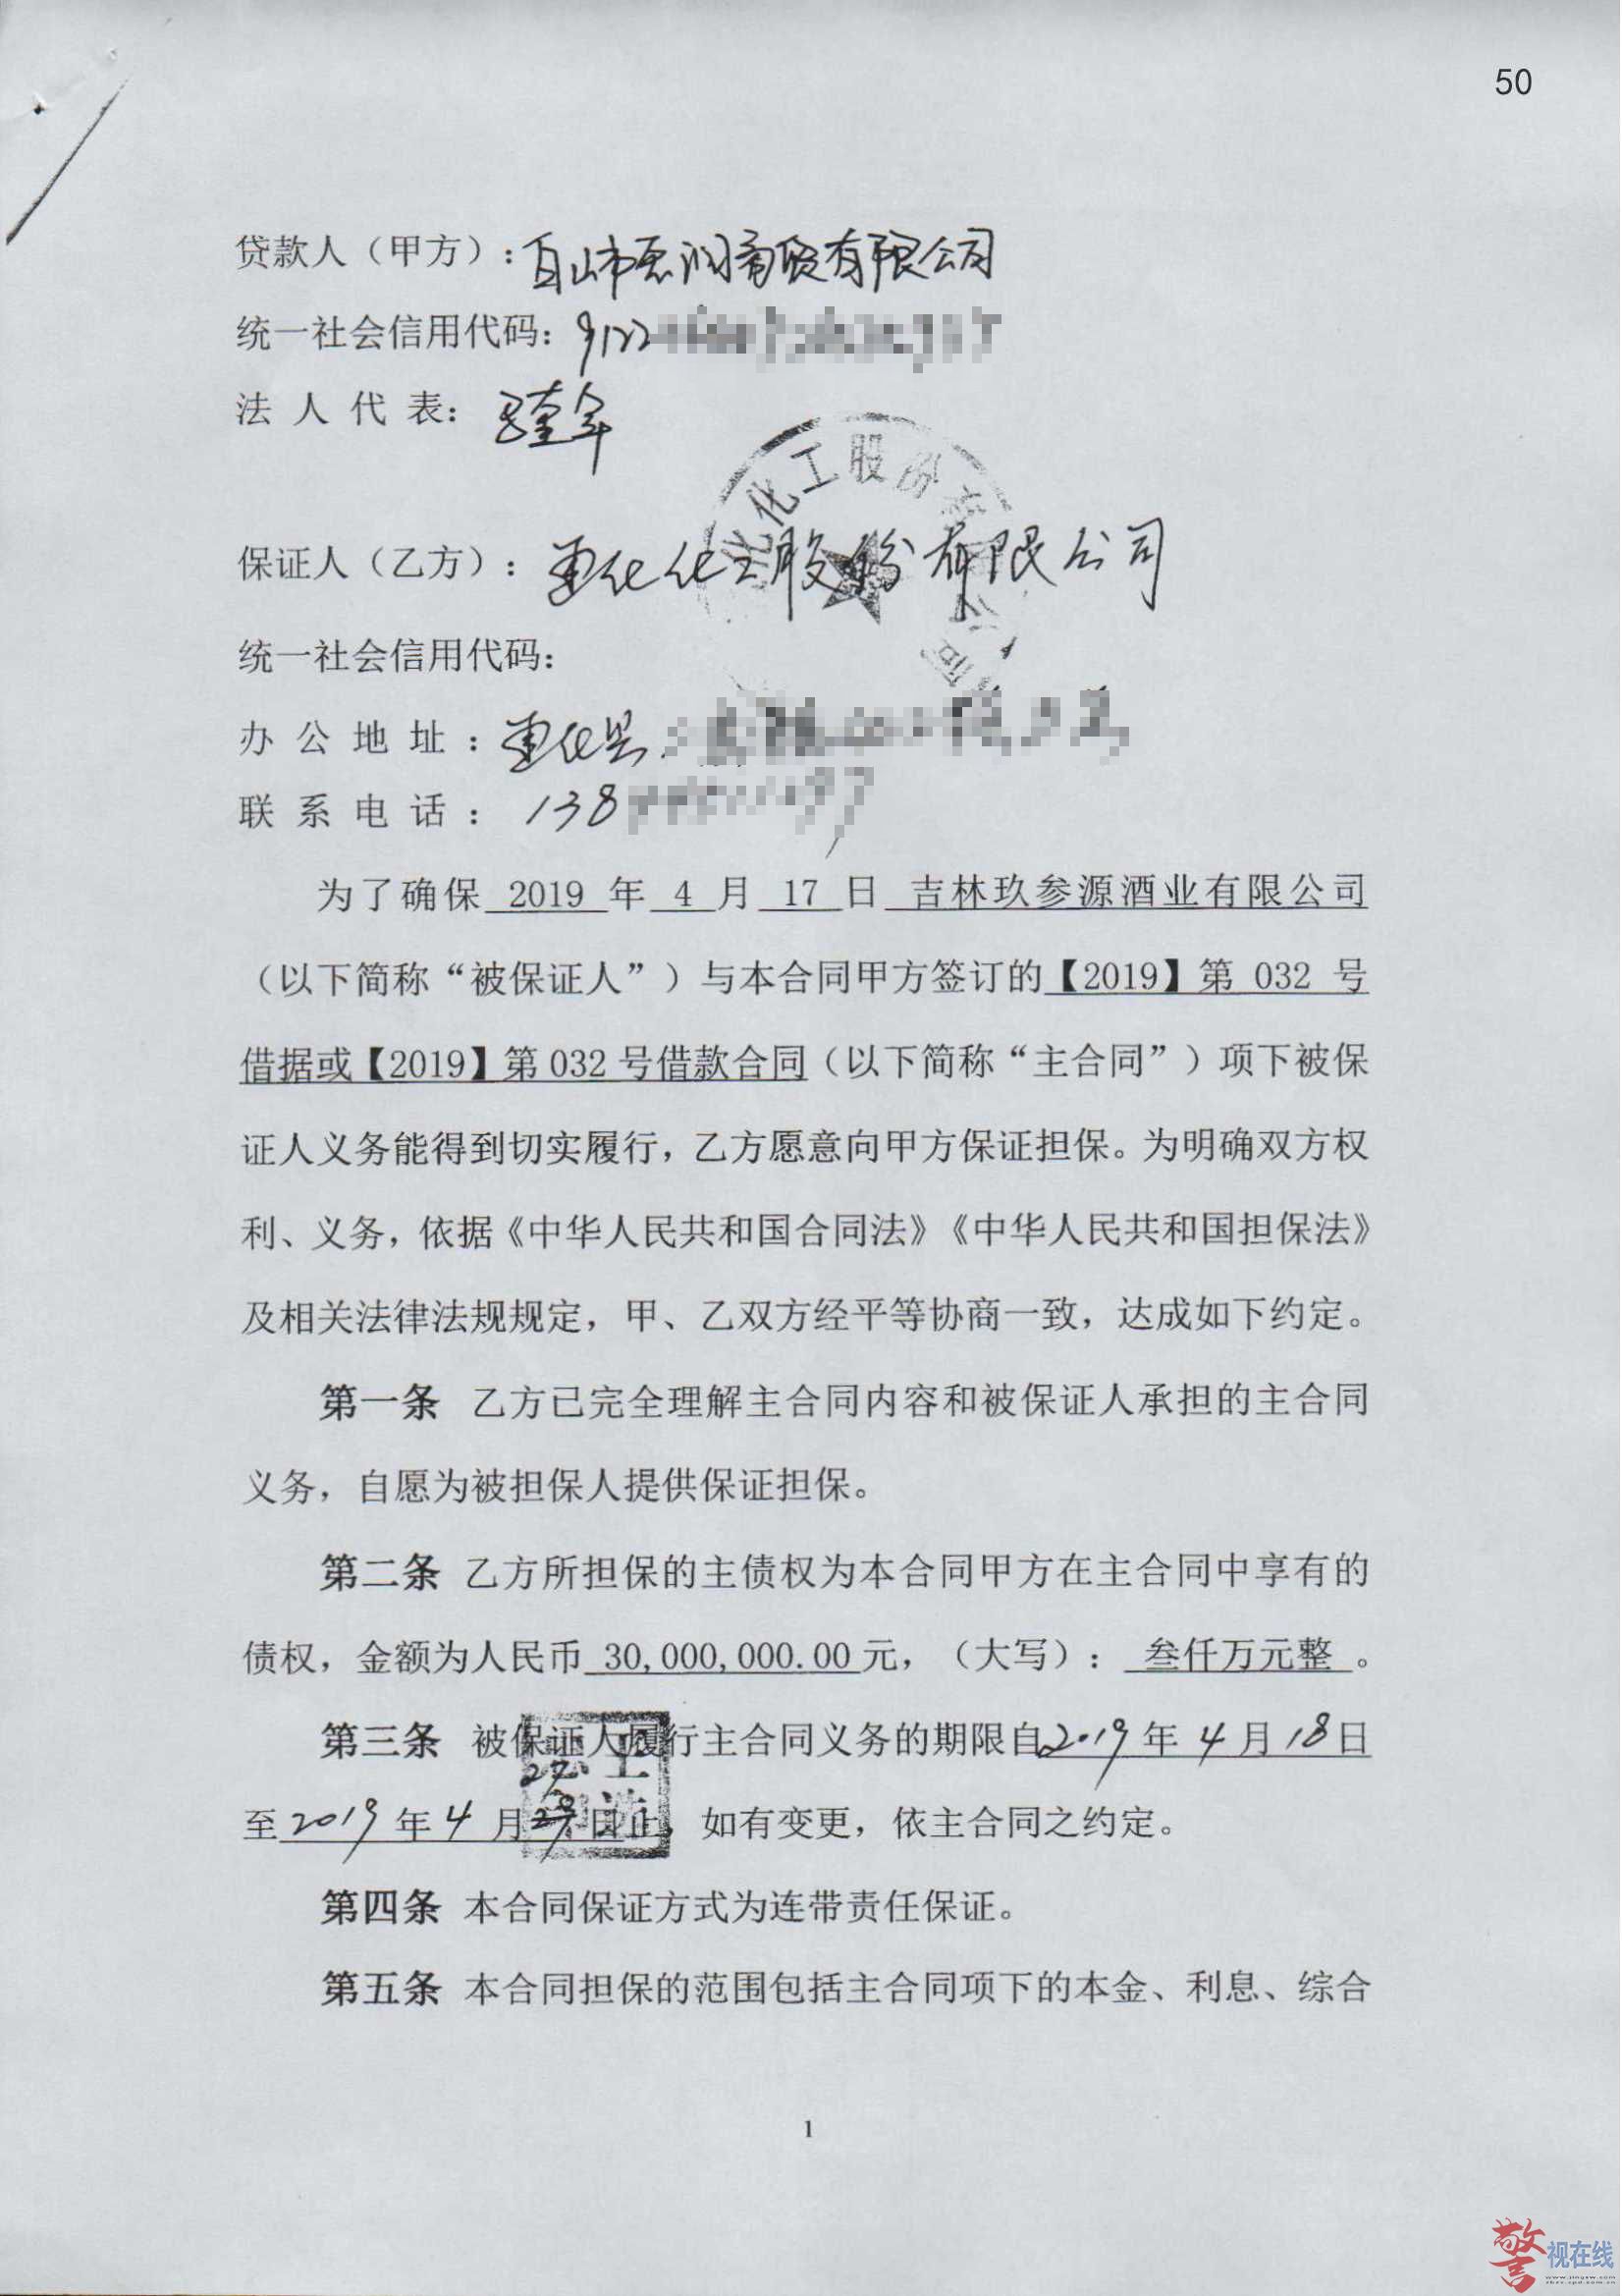 50
贷款人（甲方）：白山市恩润商贸有限公司
统一社会信用代码：9122
法 人 代 表：
保证人（乙方）：通化化工股份有限公司
化化工股份有 公司
统一社会信用代码：
办 公 地 址 ：通化县
联 系 电 话 ： 138
为了确保 2019 年 4 月 17 日 吉林玖参源酒业有限公司
（以下简称“被保证人”）与本合同甲方签订的【2019】第 032 号
借据或【2019】第 032 号借款合同（以下简称“主合同”）项下被保
证人义务能得到切实履行，乙方愿意向甲方保证担保。为明确双方权
利、义务，依据《中华人民共和国合同法》《中华人民共和国担保法》
及相关法律法规规定，甲、乙双方经平等协商一致，达成如下约定。
第一条 乙方已完全理解主合同内容和被保证人承担的主合同
义务，自愿为被担保人提供保证担保。
第二条 乙方所担保的主债权为本合同甲方在主合同中享有的
债权，金额为人民币 30,000,000.00 元，（大写）： 叁仟万元整 。
第三条 被保证人履行主合同义务的期限自2019年 4 月 18日
27
至 2019 年 4 月 日止，如有变更，依主合同之约定。
第四条 本合同保证方式为连带责任保证。
第五条 本合同担保的范围包括主合同项下的本金、利息、综合
1
警视在线